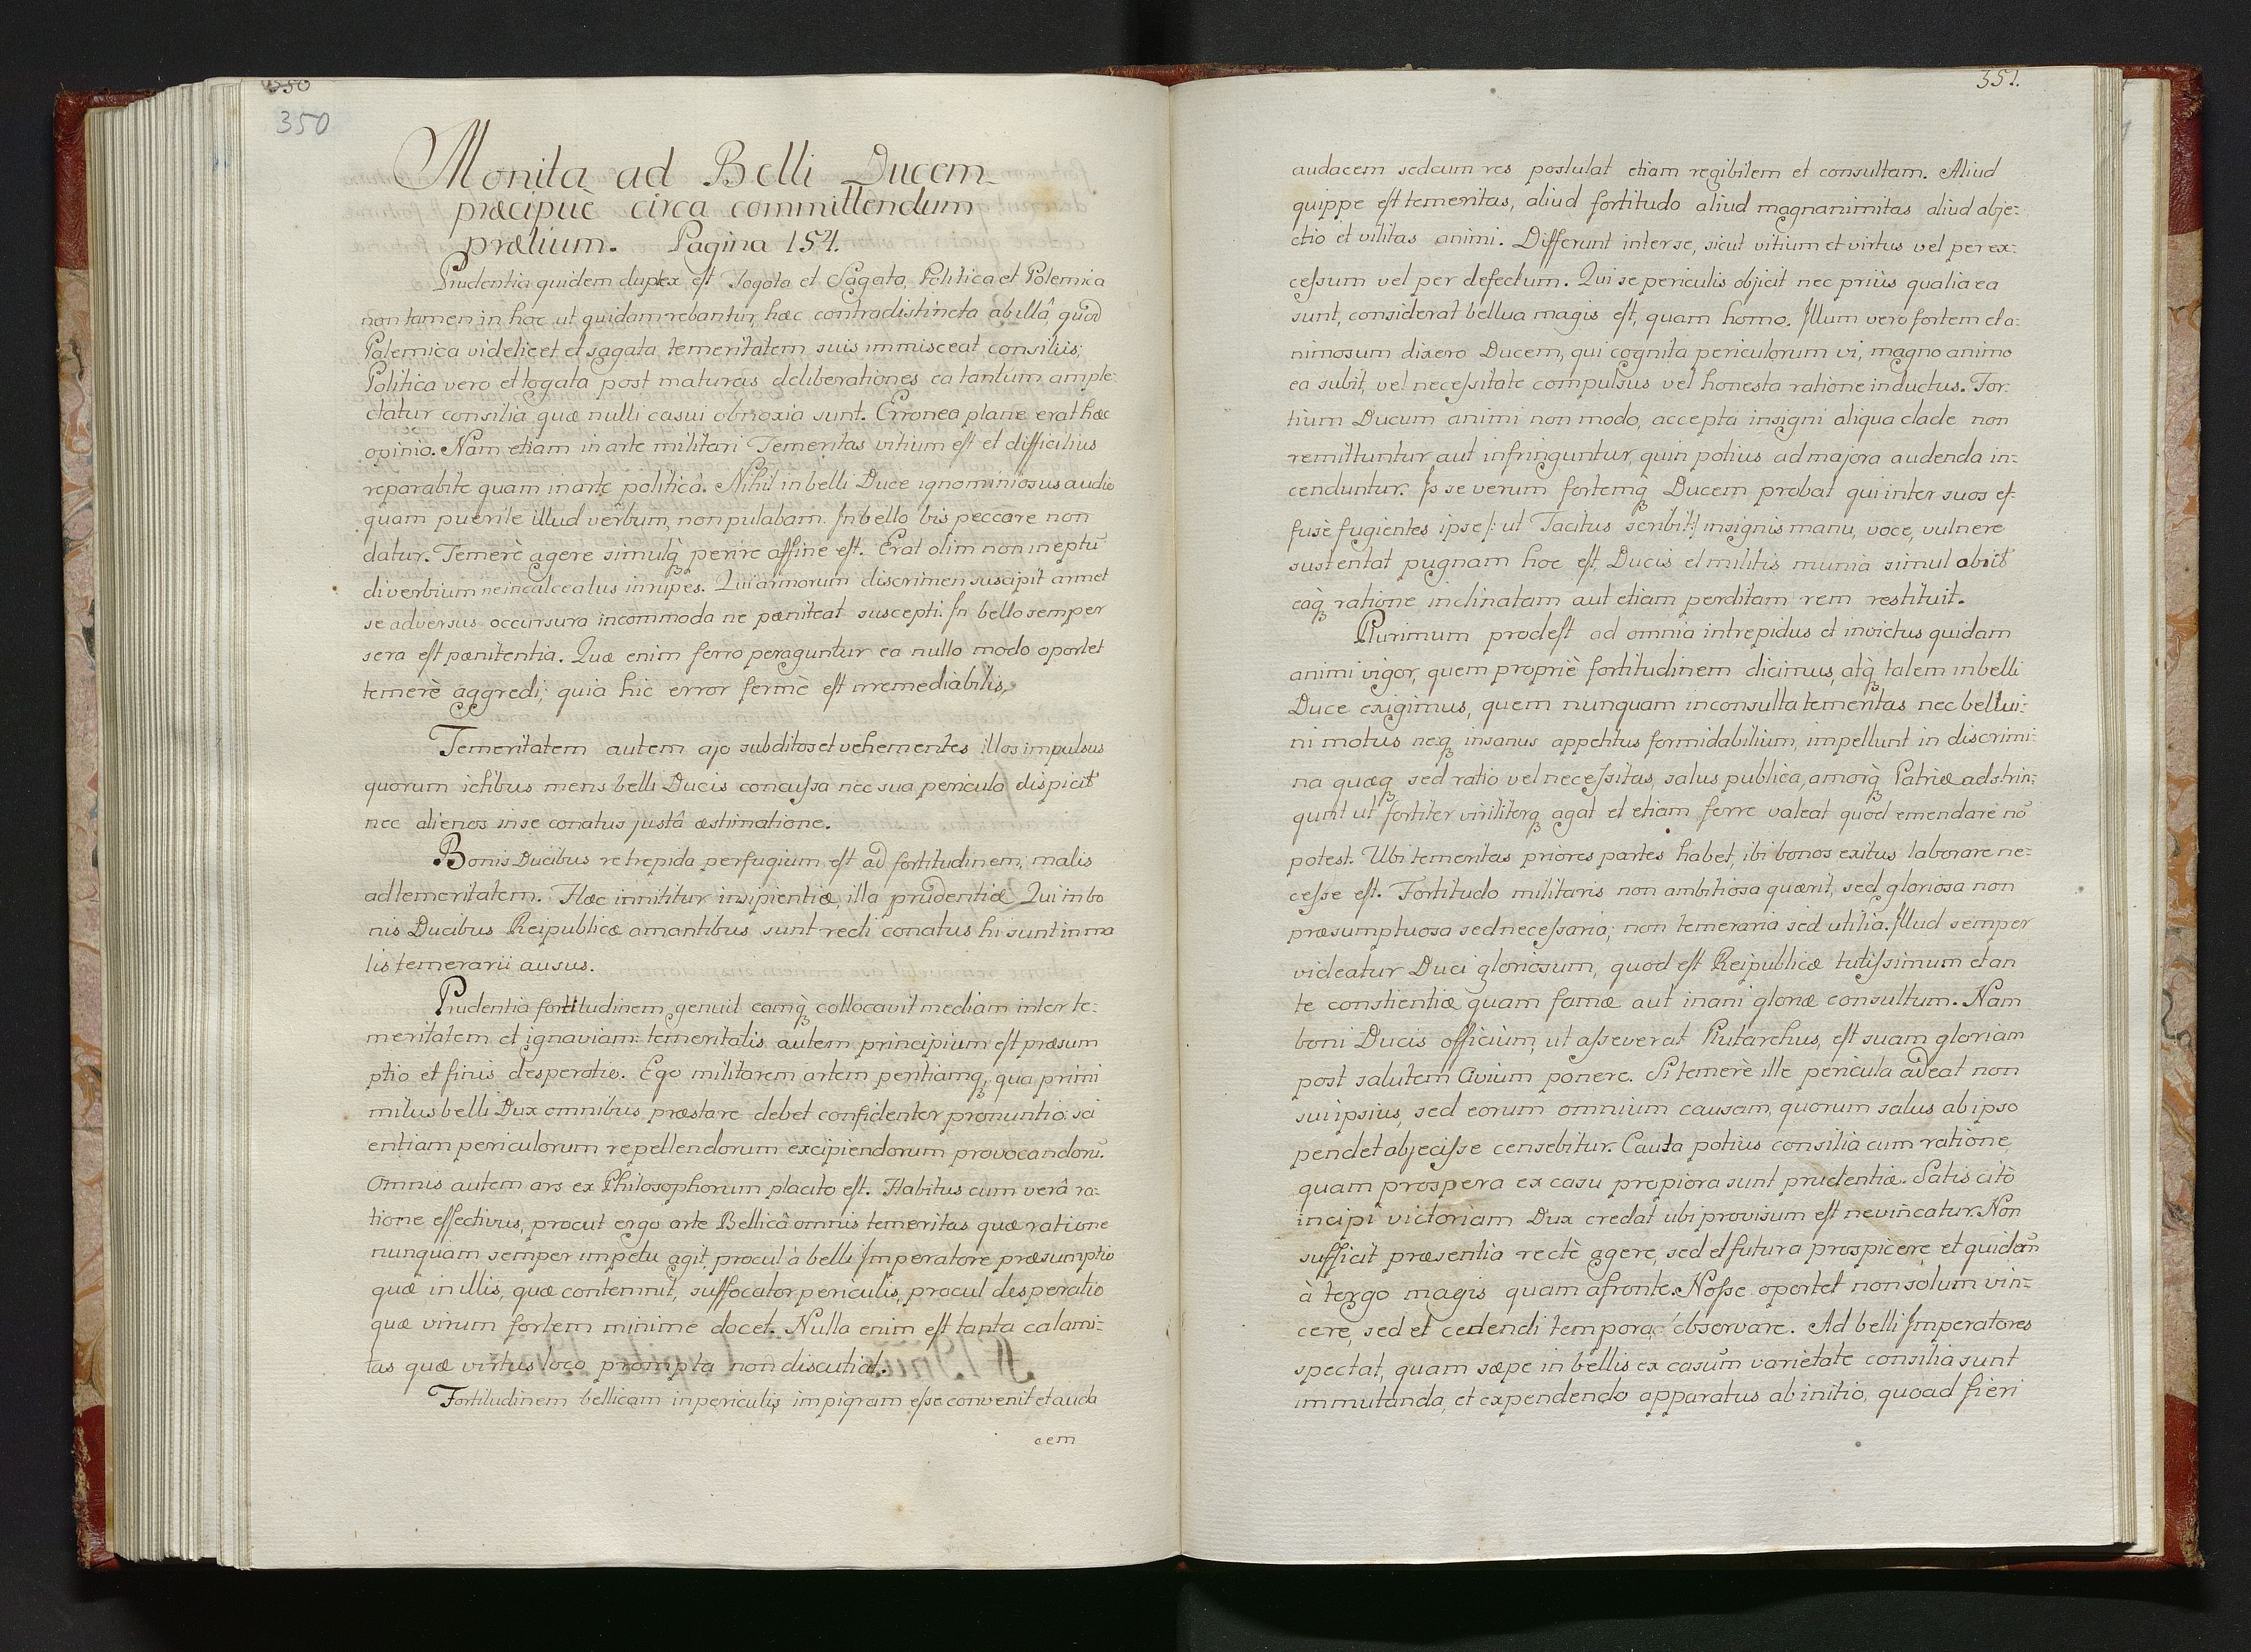 350
350
Monita ad Belli Ducem
præcipuè circa committendum
prælium. Pagina 154.
Prudentia quidem duplex est Togata et Sagata, Politica et Polemica
non tamen in hoc ut quidam rebantur, hæc contradistincta ab illâ, quod
Polemica videlicet et sagata temeritatem suis immisceat consiliis;
Politica vero et togata post maturas deliberationes ea tantum ample-
ctatur consilia quæ nulli casui obnoxia sunt. Erronea plane erat hæc
opinio. Nam etiam in arte militari Temeritas vitium est et difficilius
reparabile quam in arte politicâ. Nihil in belli Duce ignominiosus audio
quam puerile illud verbum, non putabam. In bello bis peccare non
datur. Temerè agere simulq perire affine est. Erat olim non ineptũ
diverbium ne incalceatus in rupes. Qui armorum discrimen suscipit armet
se adversus occursura incommoda ne pæniteat suscepti. In bello semper
sera est pænitentia. Quæ enim ferro peraguntur ea nullo modo oportet
temerè aggredi; quia hic error fermè est irremediabilis.
Temeritatem autem ajo subditos et vehementes illos impulsus
quorum ictibus mens belli Ducis concussa nec sua pericula dispicit
nec alienos in se conatus justâ æstimatione.
Bonis Ducibus re trepida perfugium est ad fortitudinem, malis
ad temeritatem. Hæc innititur insipientiæ, illa prudentiæ Qui in bo
nis Ducibus Reipublicæ amantibus sunt recti conatus hi sunt in ma
lis temerarii ausus.
Prudentia fortitudinem genuit eamq collocavit mediam inter te-
meritatem et ignaviam: temeritatis autem principium est præsum
ptio et finis desperatio. Ego militarem artem peritiamq, qua primi
milus belli Dux omnibus præstare debet confidenter pronuntio: sci
entiam periculorum repellendorum excipiendorum provocandorũ.
Omnis autem ars ex Philosophorum placito est. Habitus cum verâ ra-
tione effectivus, procut ergo arte Bellicâ omnis temeritas quæ ratione
nunquam semper impetu agit, procul à belli Imperatore præsumptio
quæ in illis, quæ contemnit, suffocator periculis, procul desperatio
quæ virum fortem minime docet. Nulla enim est tanta calami-
tas quæ virtus loco prompta non discutiat.
Fortitudinem bellicam in periculis impigram esse convenit et auda
cem
351.
audacem sedcum res postulat etiam regibilem et consultam. Aliud
quippe est temeritas, aliud fortitudo aliud magnanimitas aliud abje-
ctio et vilitas animi. Differunt inter se, sicut vitium et virtus vel per ex-
cessum vel per defectum. Qui se periculis objicit nec priùs qualia ea
sunt, considerat bellua magis est, quam homo. Illum vero fortem et a-
nimosum dixero Ducem, qui cognita periculorum vi, magno animo
ea subit, vel necessitate compulsus vel honesta ratione inductus. For-
tium Ducum animi non modo, accepta insigni aliqua clade non
remittuntur aut infringuntur, quin potius ad majora audenda in-
cenduntur. Is se verum fortemq Ducem probat qui inter suos ef-
fusè fugientes ipse /: ut Tacitus scribit :/ insignis manu, voce, vulnere
sustentat pugnam hoc est, Ducis et militis munia simul obit
eaq ratione inclinatam aut etiam perditam rem restituit.
Plurimum prodest ad omnia intrepidus et invictus quidam
animi vigor, quem propriè fortitudinem dicimus, atq talem in belli
Duce exigimus, quem nunquam inconsulta temeritas nec bellui-
ni motus neq insanus appetitus formidabilium, impellunt in discrimi-
na quæq sed ratio vel necessitas, salus publica, amorq Patriæ adstrin-
gunt ut fortiter viriliterq agat et etiam ferre valeat quod emendare nõ
potest. Ubi temeritas priores partes habet, ibi bonos exitus laborare ne-
cesse est. Fortitudo militaris non ambitiosa quærit, sed gloriosa non
præsumptuosa sed necessaria; non temeraria sed utilia. Illud semper
videatur Duci gloriosum, quod est Reipublicæ tutissimum et an
te constientiæ quam famæ aut inani gloriæ consultum. Nam
boni Ducis officium, ut asseverat Plutarchus, est suam gloriam
post salutem Civium ponere. Si temerè ille pericula adeat non
sui ipsius, sed eorum omnium causam, quorum salus ab ipso
pendet abjecisse censebitur. Cauta potius consilia cum ratione,
quam prospera ex casu propiora sunt prudentiæ. Satis citò
incipi victoriam Dux credat ubi provisum est ne vincatur. Non
sufficit præsentia rectè agere, sed et futura prospicere, et quidem
à tergo magis quam a fronte. Nosse oportet non solum vin-
cere, sed et cedendi tempora observare. Ad belli Imperatores
spectat, quam sæpe in bellis ex casuum varietate consilia sunt
immutanda, et expendendo apparatus ab initio, quoad fieri